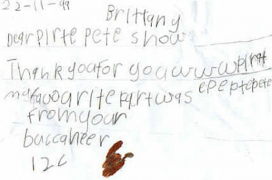 22-11-99
Brittany
Dear pirte pete show
Thank you for you
my favougrite part was epeptepete
from your
buccaneer
12C